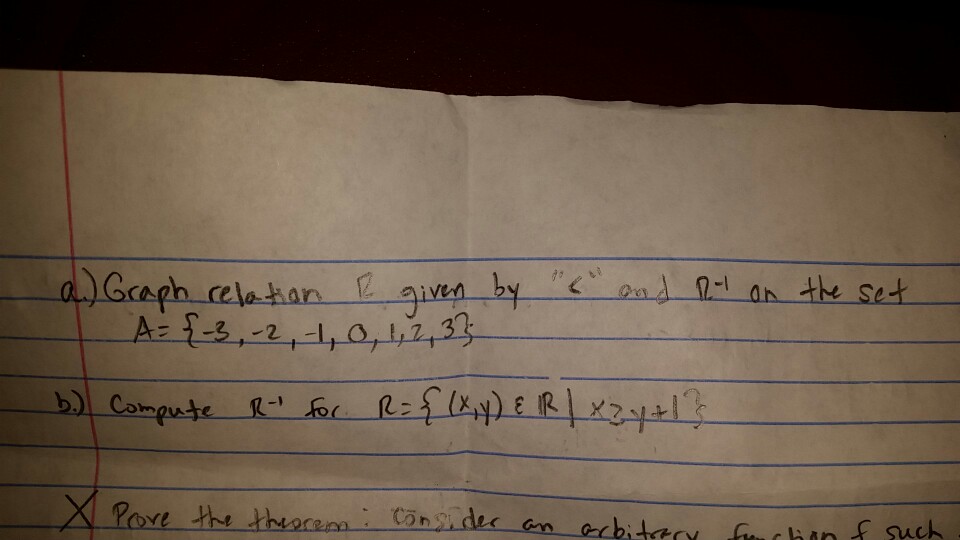 a.) Graph relation R given by "<" and R⁻¹ on the set
A = {-3, -2, -1, 0, 1, 2, 3};
b.) Compute R⁻¹ for R = {(x,y) ∈ ℝ | x ≥ y+1}
X Prove the theorem: Consider an arbitrary function f such